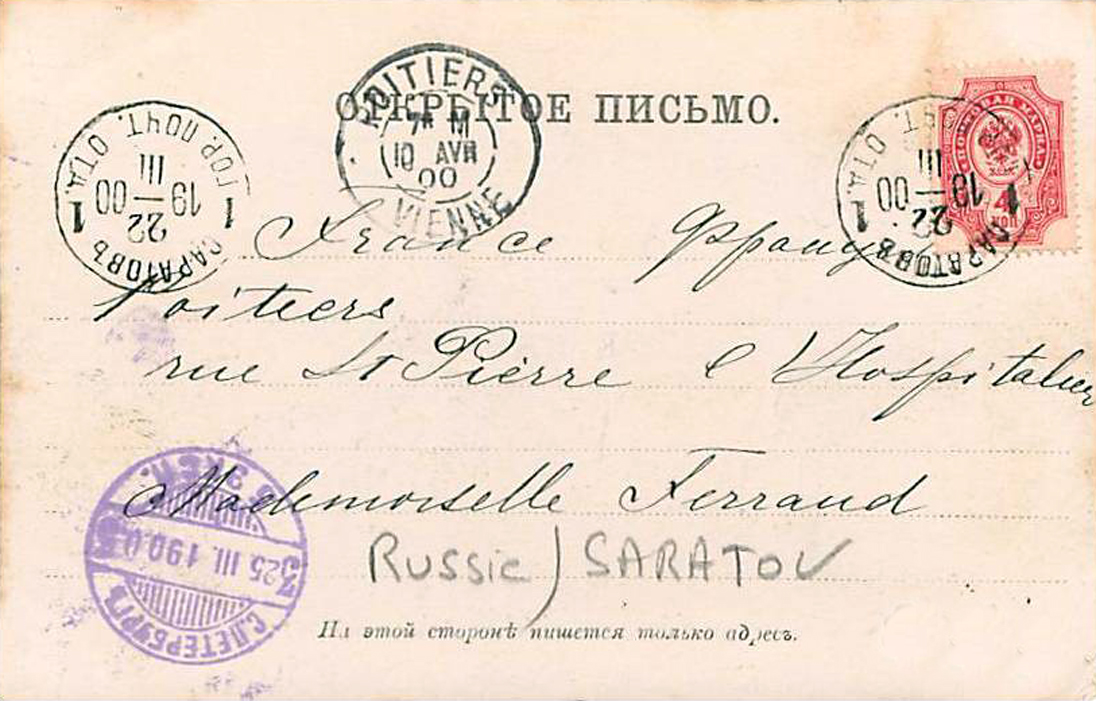 ОТКРЫТОЕ ПИСЬМО.
POITIERS
7 M
10 AVR
00
VIENNE
САРАТОВЪ
22
19 — 00
III
1 1
ГОР. ПОЧТ. ОТД.
САРАТОВЪ
22
19 — 00
III
1 1
ПОЧТ. ОТД.
ПОЧТОВАЯ МАРКА
4
КОП
France
Poitiers
rue St Pierre l'Hospitalier
Mademoiselle Ferraud
С.ПЕТЕРБУРГЪ
25 III. 1900
RUSSIE) SARATOV
На этой сторонѣ пишется только адресъ.